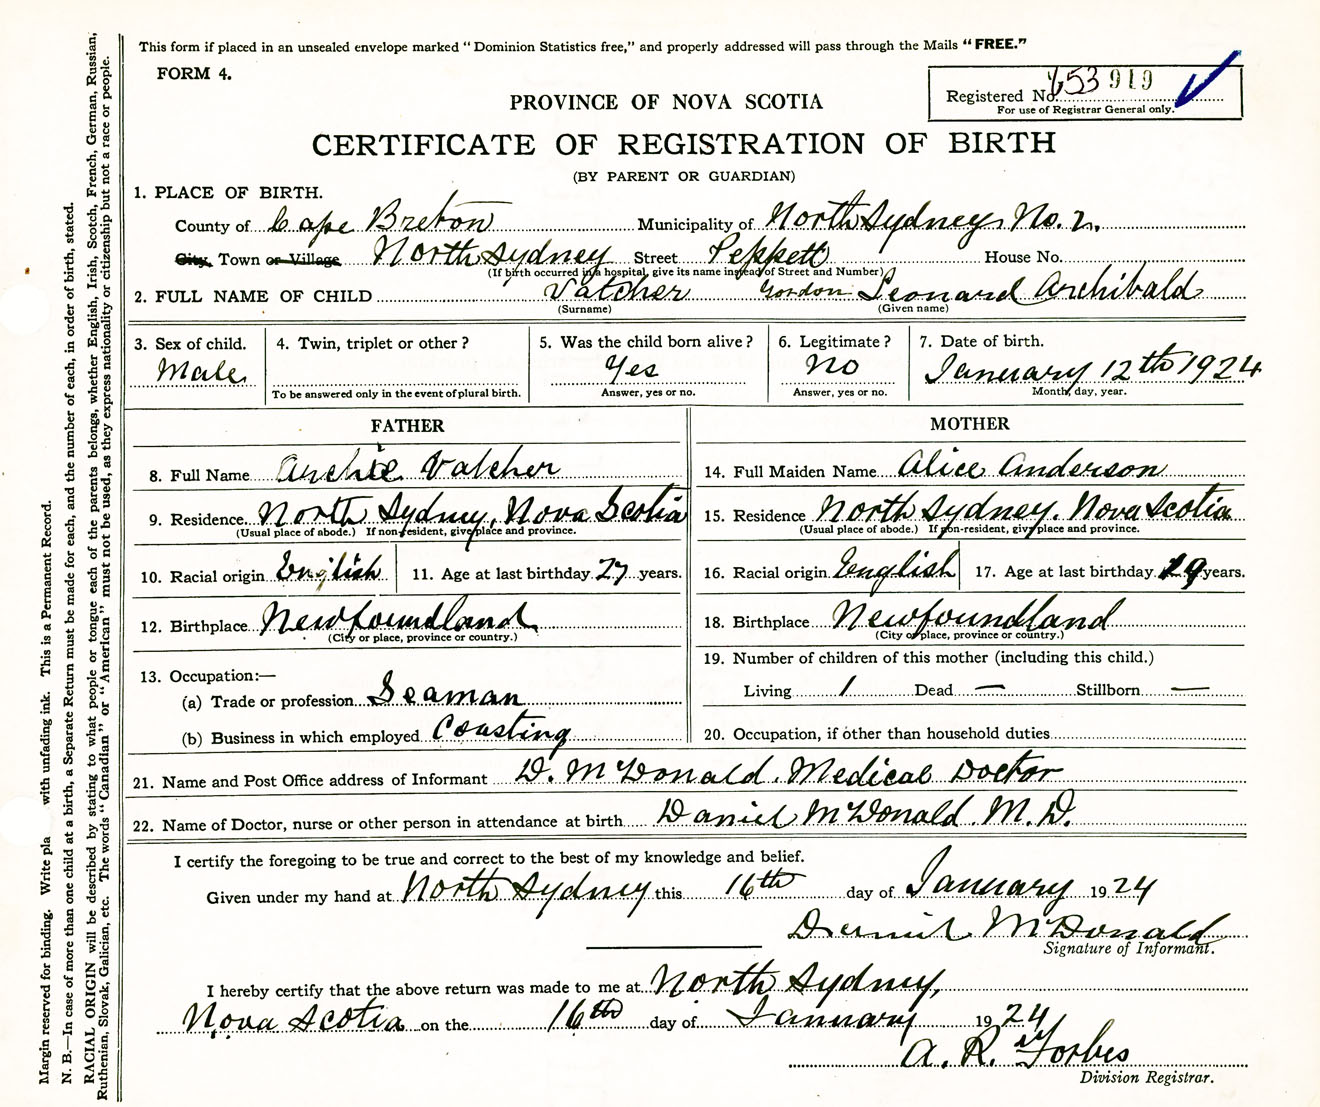 This form if placed in an unsealed envelope marked "Dominion Statistics free," and properly addressed will pass through the Mails "FREE."
FORM 4.
Registered No. 653919
For use of Registrar General only.
PROVINCE OF NOVA SCOTIA
CERTIFICATE OF REGISTRATION OF BIRTH
(BY PARENT OR GUARDIAN)
1. PLACE OF BIRTH.
County of Cape Breton Municipality of North Sydney, No. 2.
City, Town or Village North Sydney Street Peppett House No.
(If birth occurred in a hospital, give its name instead of Street and Number)
2. FULL NAME OF CHILD Vatcher Gordon Leonard Archibald
(Surname) (Given name)
3. Sex of child. 4. Twin, triplet or other? 5. Was the child born alive? 6. Legitimate? 7. Date of birth.
Male Yes No January 12th 1924
To be answered only in the event of plural birth. Answer, yes or no. Answer, yes or no. Month, day, year.
FATHER MOTHER
8. Full Name Archie Vatcher 14. Full Maiden Name Alice Anderson
9. Residence North Sydney, Nova Scotia 15. Residence North Sydney. Nova Scotia
(Usual place of abode.) If non-resident, give place and province. (Usual place of abode.) If non-resident, give place and province.
10. Racial origin English 11. Age at last birthday 27 years. 16. Racial origin English 17. Age at last birthday 19 years.
12. Birthplace Newfoundland 18. Birthplace Newfoundland
(City or place, province or country.) (City or place, province or country.)
19. Number of children of this mother (including this child.)
13. Occupation:—
(a) Trade or profession Seaman Living 1 Dead — Stillborn —
(b) Business in which employed Coasting 20. Occupation, if other than household duties
21. Name and Post Office address of Informant D. McDonald. Medical Doctor
22. Name of Doctor, nurse or other person in attendance at birth Daniel McDonald M.D.
I certify the foregoing to be true and correct to the best of my knowledge and belief.
Given under my hand at North Sydney this 16th day of January 1924
Daniel McDonald
Signature of Informant.
I hereby certify that the above return was made to me at North Sydney,
Nova Scotia on the 16th day of January 1924
A. R. Forbes
Division Registrar.
Margin reserved for binding. Write pla with unfading ink. This is a Permanent Record.
N. B.—In case of more than one child at a birth, a Separate Return must be made for each, and the number of each, in order of birth, stated.
RACIAL ORIGIN will be described by stating to what people or tongue each of the parents belongs, whether English, Irish, Scotch, French, German, Russian,
Ruthenian, Slovak, Galician, etc. The words "Canadian" or "American" must not be used, as they express nationality or citizenship but not a race or people.